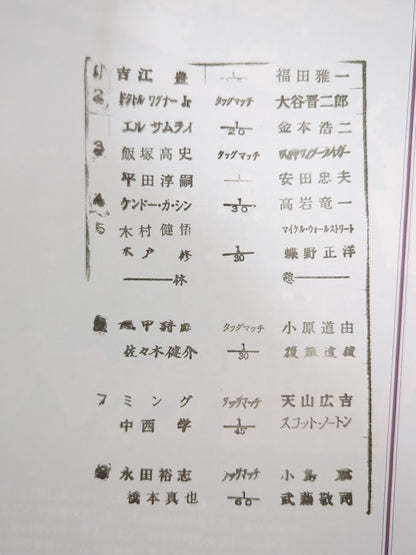 1 吉江豊 1 福田雅一
2 ドクトル ワグナーJr タッグマッチ 大谷晋二郎
エル サムライ 1/20 金本浩二
3 飯塚高史 タッグマッチ
平田淳嗣 1 安田忠夫
4 ケンドー・カ・シン 1/30 高岩竜一
5 木村健悟 マイケル・ウォールストリート
木戸修 1/30 蝶野正洋
休 憩
甲 タッグマッチ 小原道由
佐々木健介 1/30 後藤達俊
7 ミング タッグマッチ 天山広吉
中西学 1/45 スコット・ノートン
永田裕志 タッグマッチ 小島
橋本真也 1/60 武藤敬司